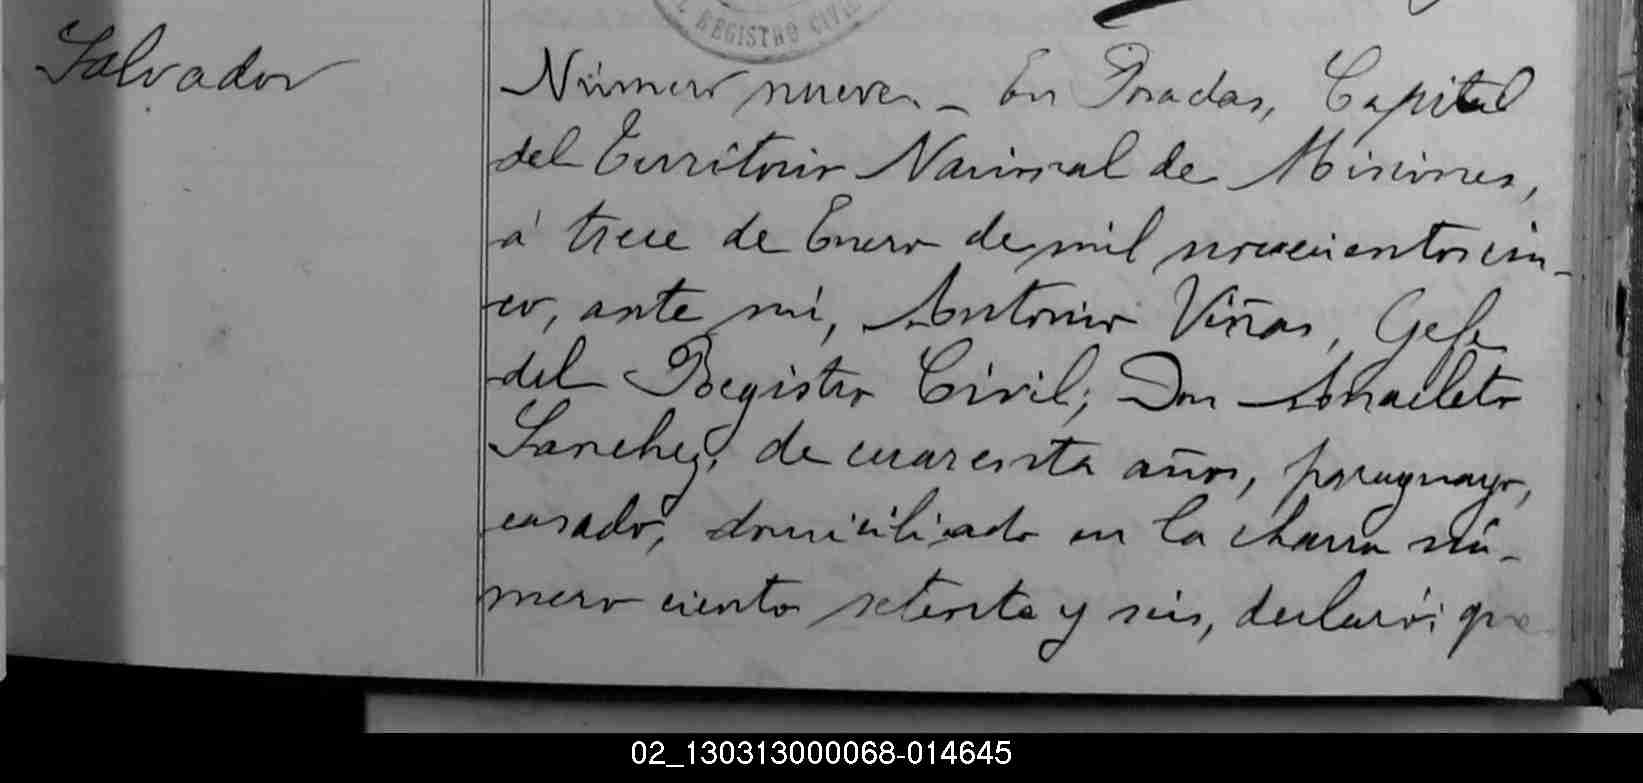 L REGISTRO CIVIL
Salvador
Número nueve. - En Posadas, Capital
del Territorio Nacional de Misiones,
á trece de Enero de mil novecientos cin-
co, ante mí, Antonio Viñas, Gefe
del Registro Civil; Don Anacleto
Sanchez, de cuarenta años, paraguayo,
casado, domiciliado en la chacra nú-
mero ciento setenta y seis, declaró: que
02_130313000068-014645